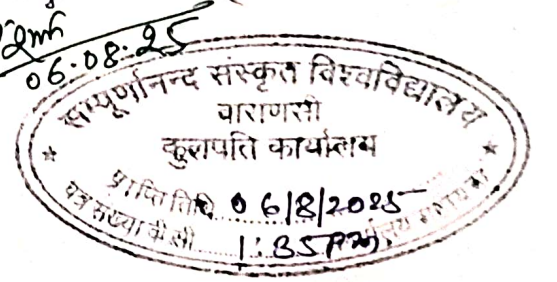 06.08.25
सम्पूर्णानन्द संस्कृत विश्वविद्यालय
वाराणसी
कुलपति कार्यालय
प्राप्ति तिथि 06/8/2025
पत्र संख्या वी.सी. 1:35PM